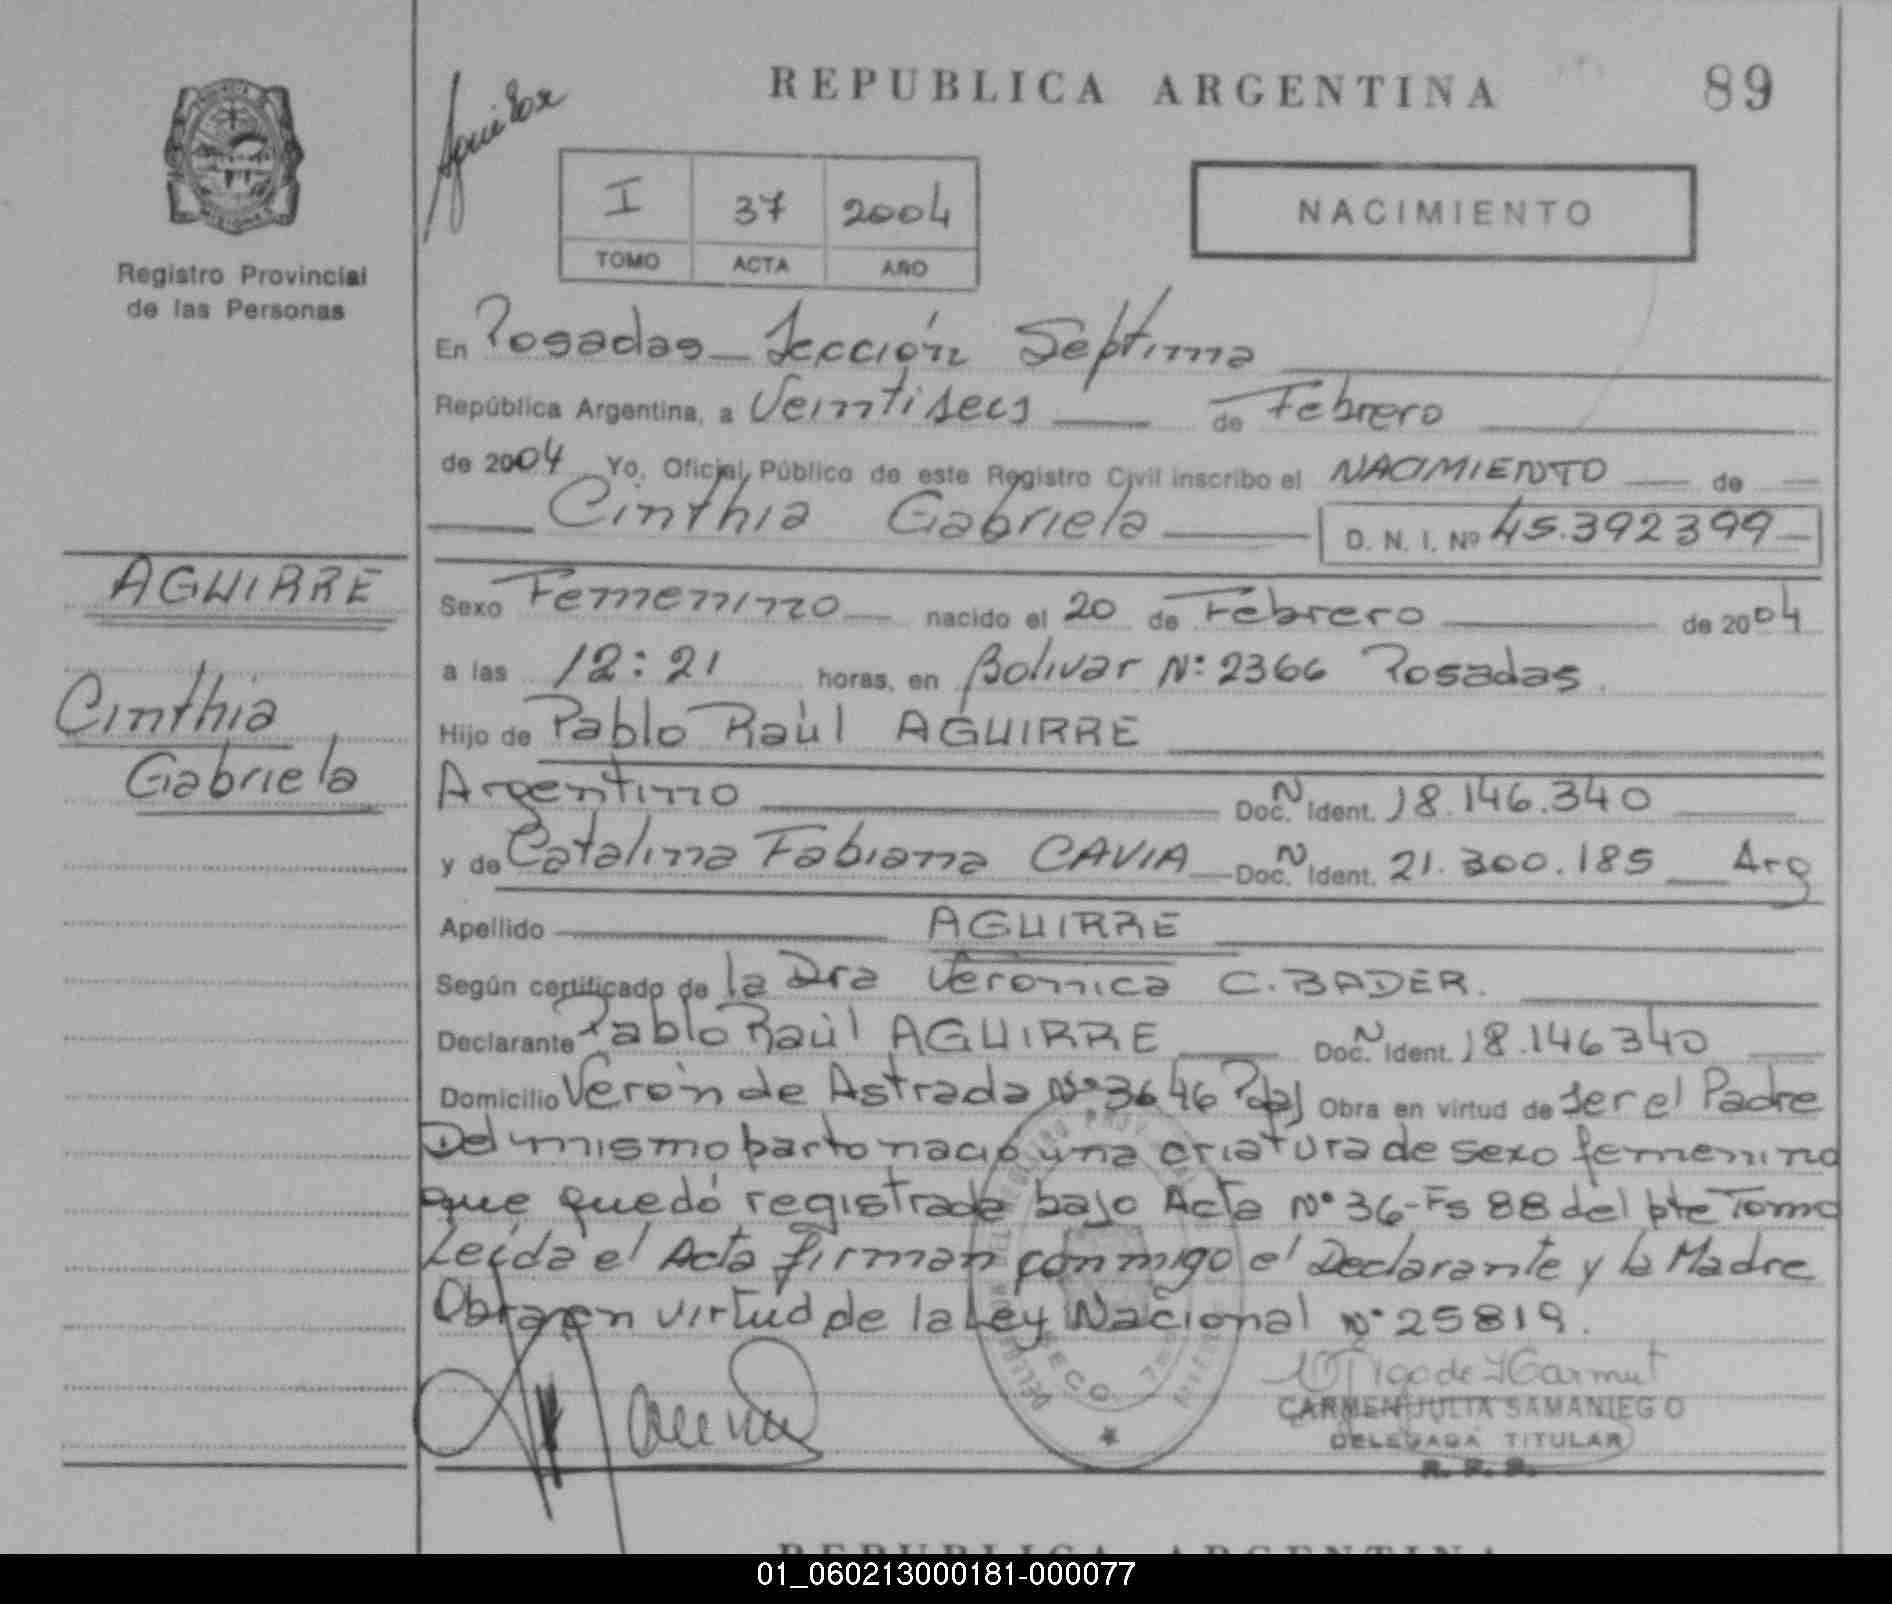 REPUBLICA ARGENTINA
89
Registro Provincial
de las Personas
I 37 2004
TOMO ACTA AÑO
NACIMIENTO
En Posadas - Sección Séptima
República Argentina, a Veintiseis de Febrero
de 2004 Yo, Oficial Público de este Registro Civil inscribo el NACIMIENTO de
Cinthia Gabriela D. N. I. Nº 45.392399
AGUIRRE
Cinthia
Gabriela
Sexo Femenino nacido el 20 de Febrero de 2004
a las 12:21 horas, en Bolivar Nº 2366 Posadas.
Hijo de Pablo Raúl AGUIRRE
Argentino Doc. N Ident. 18.146.340
y de Catalina Fabiana CAVIA Doc. N Ident. 21.300.185 Arg
Apellido AGUIRRE
Según certificado de la Dra Veronica C. BADER.
Declarante Pablo Raúl AGUIRRE Doc. N Ident. 18.146340
Domicilio Verón de Astrada Nº 3646 Pdas Obra en virtud de ser el Padre
Del mismo parto nació una criatura de sexo femenino
que quedó registrada bajo Acta Nº 36-Fs 88 del pte Tomo
Leída el Acta firman conmigo el Declarante y la Madre
Obran en virtud de la Ley Nacional Nº 25819.
CARMEN JULIA SAMANIEGO
DELEGADA TITULAR
R. P. P.
REPUBLICA ARGENTINA
01_060213000181-000077